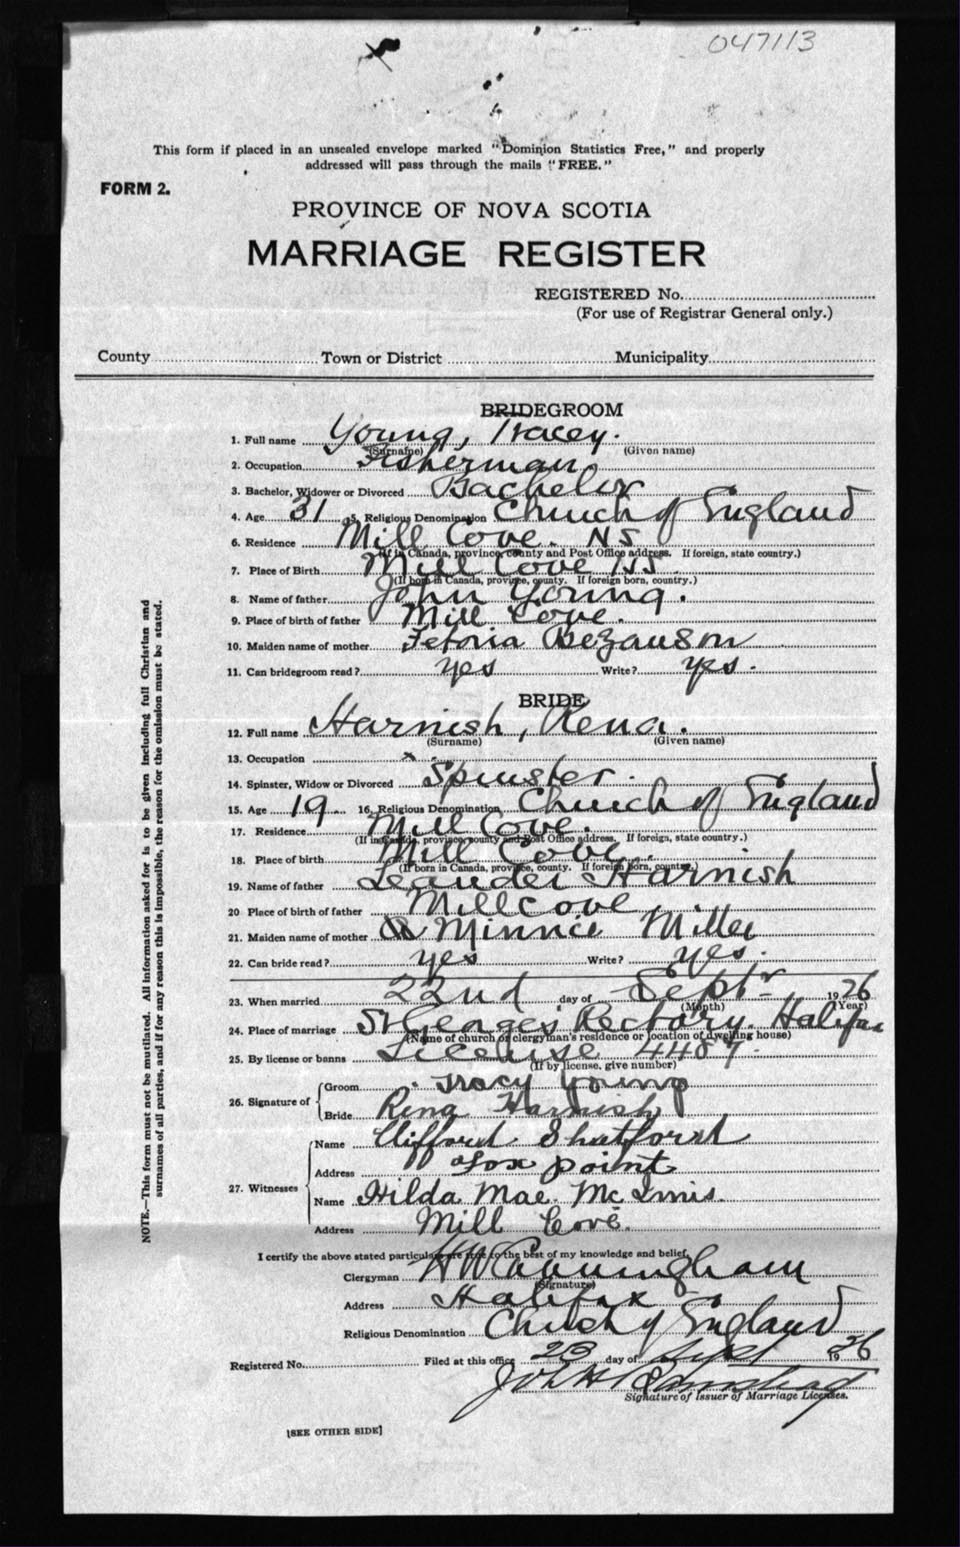 047113
This form if placed in an unsealed envelope marked "Dominion Statistics Free," and properly
addressed will pass through the mails "FREE."
FORM 2.
PROVINCE OF NOVA SCOTIA
MARRIAGE REGISTER
REGISTERED No.
(For use of Registrar General only.)
County Town or District Municipality
BRIDEGROOM
1. Full name Young, Tracey.
(Surname) (Given name)
2. Occupation Fisherman
3. Bachelor, Widower or Divorced Bachelor
4. Age 31 5. Religious Denomination Church of England
6. Residence Mill Cove. NS
(If in Canada, province, county and Post Office address. If foreign, state country.)
7. Place of Birth Mill Cove NS.
(If born in Canada, province, county. If foreign born, country.)
8. Name of father John Young.
9. Place of birth of father Mill Cove.
10. Maiden name of mother Bezanson
11. Can bridegroom read? yes Write? yes.
BRIDE
12. Full name Harnish, Rena.
(Surname) (Given name)
13. Occupation
14. Spinster, Widow or Divorced Spinster.
15. Age 19 16. Religious Denomination Church of England
17. Residence Mill Cove.
(If in Canada, province, county and Post Office address. If foreign, state country.)
18. Place of birth Mill Cove.
(If born in Canada, province, county. If foreign born, country.)
19. Name of father Leander Harnish
20 Place of birth of father Mill Cove
21. Maiden name of mother Minnie Miller
22. Can bride read? yes Write? yes.
23. When married 22nd day of Sept 1926
(Month) (Year)
24. Place of marriage St Georges Rectory. Halifax
(Name of church or clergyman's residence or location of dwelling house)
25. By license or banns License
(If by license, give number)
26. Signature of Groom Tracy Young
Bride Rena Harnish
27. Witnesses Name Clifford Shatford
Address Fox point
Name Hilda Mae McInnis.
Address Mill Cove.
I certify the above stated particulars are true to the best of my knowledge and belief,
Clergyman H W Cunningham
(Signature)
Address Halifax
Religious Denomination Church of England
Registered No. Filed at this office 23 day of Sept 1926
Signature of Issuer of Marriage Licenses.
[SEE OTHER SIDE]
NOTE.—This form must not be mutilated. All information asked for is to be given including full Christian and
surnames of all parties, and if for any reason this is impossible, the reason for the omission must be stated.